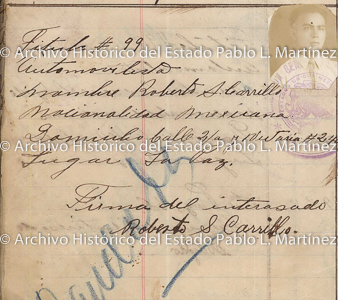 Titulo # 99.
Automovilista
Nombre Roberto S. Carrillo
© Archivo Histórico del Estado Pablo L. Martínez
Nacionalidad Mexicana
Domicilio Calle 3/a
© Archivo Histórico del Estado Pablo L. Martínez
Lugar La Paz.
Firma del interesado
Roberto S Carrillo.
© Archivo Histórico del Estado Pablo L. Martínez